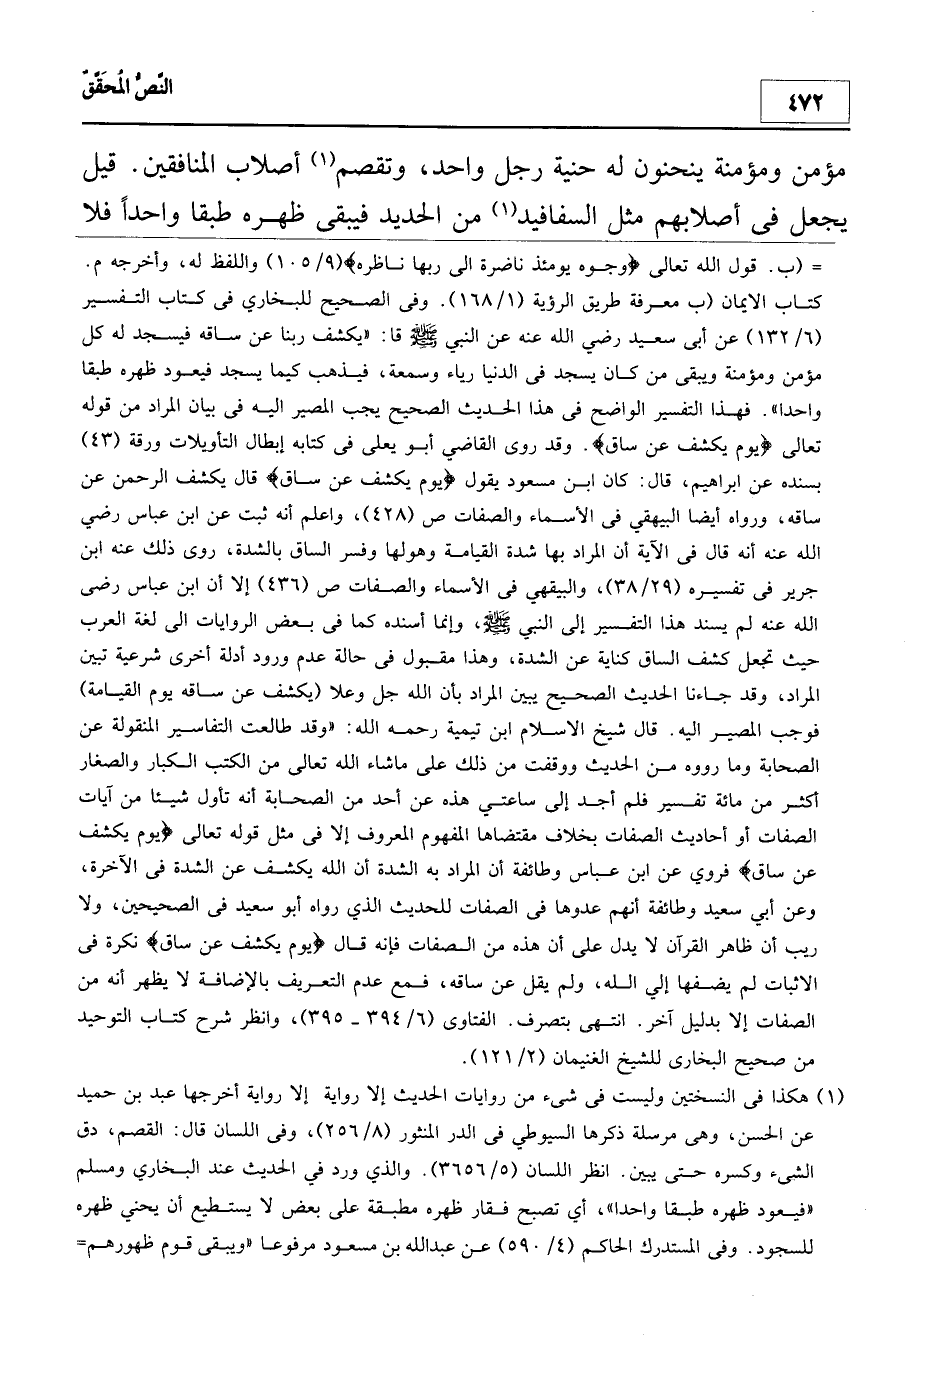 النَّصُّ المُحَقَّقُ
٤٧٢
مؤمن ومؤمنة ينحنون له حنية رجل واحد، وتقصم(١) أصلاب المنافقين. قيل
يجعل فى أصلابهم مثل السفافيد(١) من الحديد فيبقى ظهره طبقا واحداً فلا
= (ب. قول الله تعالى ﴿وجوه يومئذ ناضرة الى ربها ناظره﴾(٩/ ١٠٥) واللفظ له، وأخرجه م.
كتاب الايمان (ب معرفة طريق الرؤية (١٦٨/١). وفى الصحيح للبخاري فى كتاب التفسير
(٦/ ١٣٢) عن أبى سعيد رضي الله عنه عن النبي ﷺ قا: «يكشف ربنا عن ساقه فيسجد له كل
مؤمن ومؤمنة ويبقى من كان يسجد فى الدنيا رياء وسمعة، فيذهب كيما يسجد فيعود ظهره طبقا
واحدا». فهذا التفسير الواضح فى هذا الحديث الصحيح يجب المصير اليه فى بيان المراد من قوله
تعالى ﴿يوم يكشف عن ساق﴾. وقد روى القاضي أبو يعلى فى كتابه إبطال التأويلات ورقة (٤٣)
بسنده عن ابراهيم، قال: كان ابن مسعود يقول ﴿يوم يكشف عن ساق﴾ قال يكشف الرحمن عن
ساقه، ورواه أيضا البيهقي فى الأسماء والصفات ص (٤٢٨)، واعلم أنه ثبت عن ابن عباس رضي
الله عنه أنه قال فى الآية أن المراد بها شدة القيامة وهولها وفسر الساق بالشدة، روى ذلك عنه ابن
جرير فى تفسيره (٣٨/٢٩)، والبيقهي فى الأسماء والصفات ص (٤٣٦) إلا أن ابن عباس رضى
الله عنه لم يسند هذا التفسير إلى النبي ﷺ، وإنما أسنده كما فى بعض الروايات الى لغة العرب
حيث تجعل كشف الساق كناية عن الشدة، وهذا مقبول فى حالة عدم ورود أدلة أخرى شرعية تبين
المراد، وقد جاءنا الحديث الصحيح يبين المراد بأن الله جل وعلا (يكشف عن ساقه يوم القيامة)
فوجب المصير اليه. قال شيخ الاسلام ابن تيمية رحمه الله: «وقد طالعت التفاسير المنقولة عن
الصحابة وما رووه من الحديث ووقفت من ذلك على ماشاء الله تعالى من الكتب الكبار والصغار
أكثر من مائة تفسير فلم أجد إلى ساعتي هذه عن أحد من الصحابة أنه تأول شيئا من آيات
الصفات أو أحاديث الصفات بخلاف مقتضاها المفهوم المعروف إلا فى مثل قوله تعالى ﴿يوم يكشف
عن ساق﴾ فروي عن ابن عباس وطائفة أن المراد به الشدة أن الله يكشف عن الشدة فى الآخرة،
وعن أبي سعيد وطائفة أنهم عدوها فى الصفات للحديث الذي رواه أبو سعيد فى الصحيحين، ولا
ريب أن ظاهر القرآن لا يدل على أن هذه من الصفات فإنه قال ﴿يوم يكشف عن ساق﴾ نكرة فى
الاثبات لم يضفها إلي الله، ولم يقل عن ساقه، فمع عدم التعريف بالإضافة لا يظهر أنه من
الصفات إلا بدليل آخر. انتهى بتصرف. الفتاوى (٦/ ٣٩٤ ـ ٣٩٥)، وانظر شرح كتاب التوحيد
من صحيح البخارى للشيخ الغنيمان (٢/ ١٢١).
(١) هكذا فى النسختين وليست فى شىء من روايات الحديث إلا رواية إلا رواية أخرجها عبد بن حميد
عن الحسن، وهى مرسلة ذكرها السيوطي فى الدر المنثور (٢٥٦/٨)، وفى اللسان قال: القصم، دق
الشىء وكسره حتى يبين. انظر اللسان (٣٦٥٦/٥). والذي ورد في الحديث عند البخاري ومسلم
«فيعود ظهره طبقا واحدا»، أي تصبح فقار ظهره مطبقة على بعض لا يستطيع أن يحني ظهره
للسجود. وفى المستدرك الحاكم (٤/ ٥٩٠) عن عبدالله بن مسعود مرفوعا «ويبقى قوم ظهورهم=